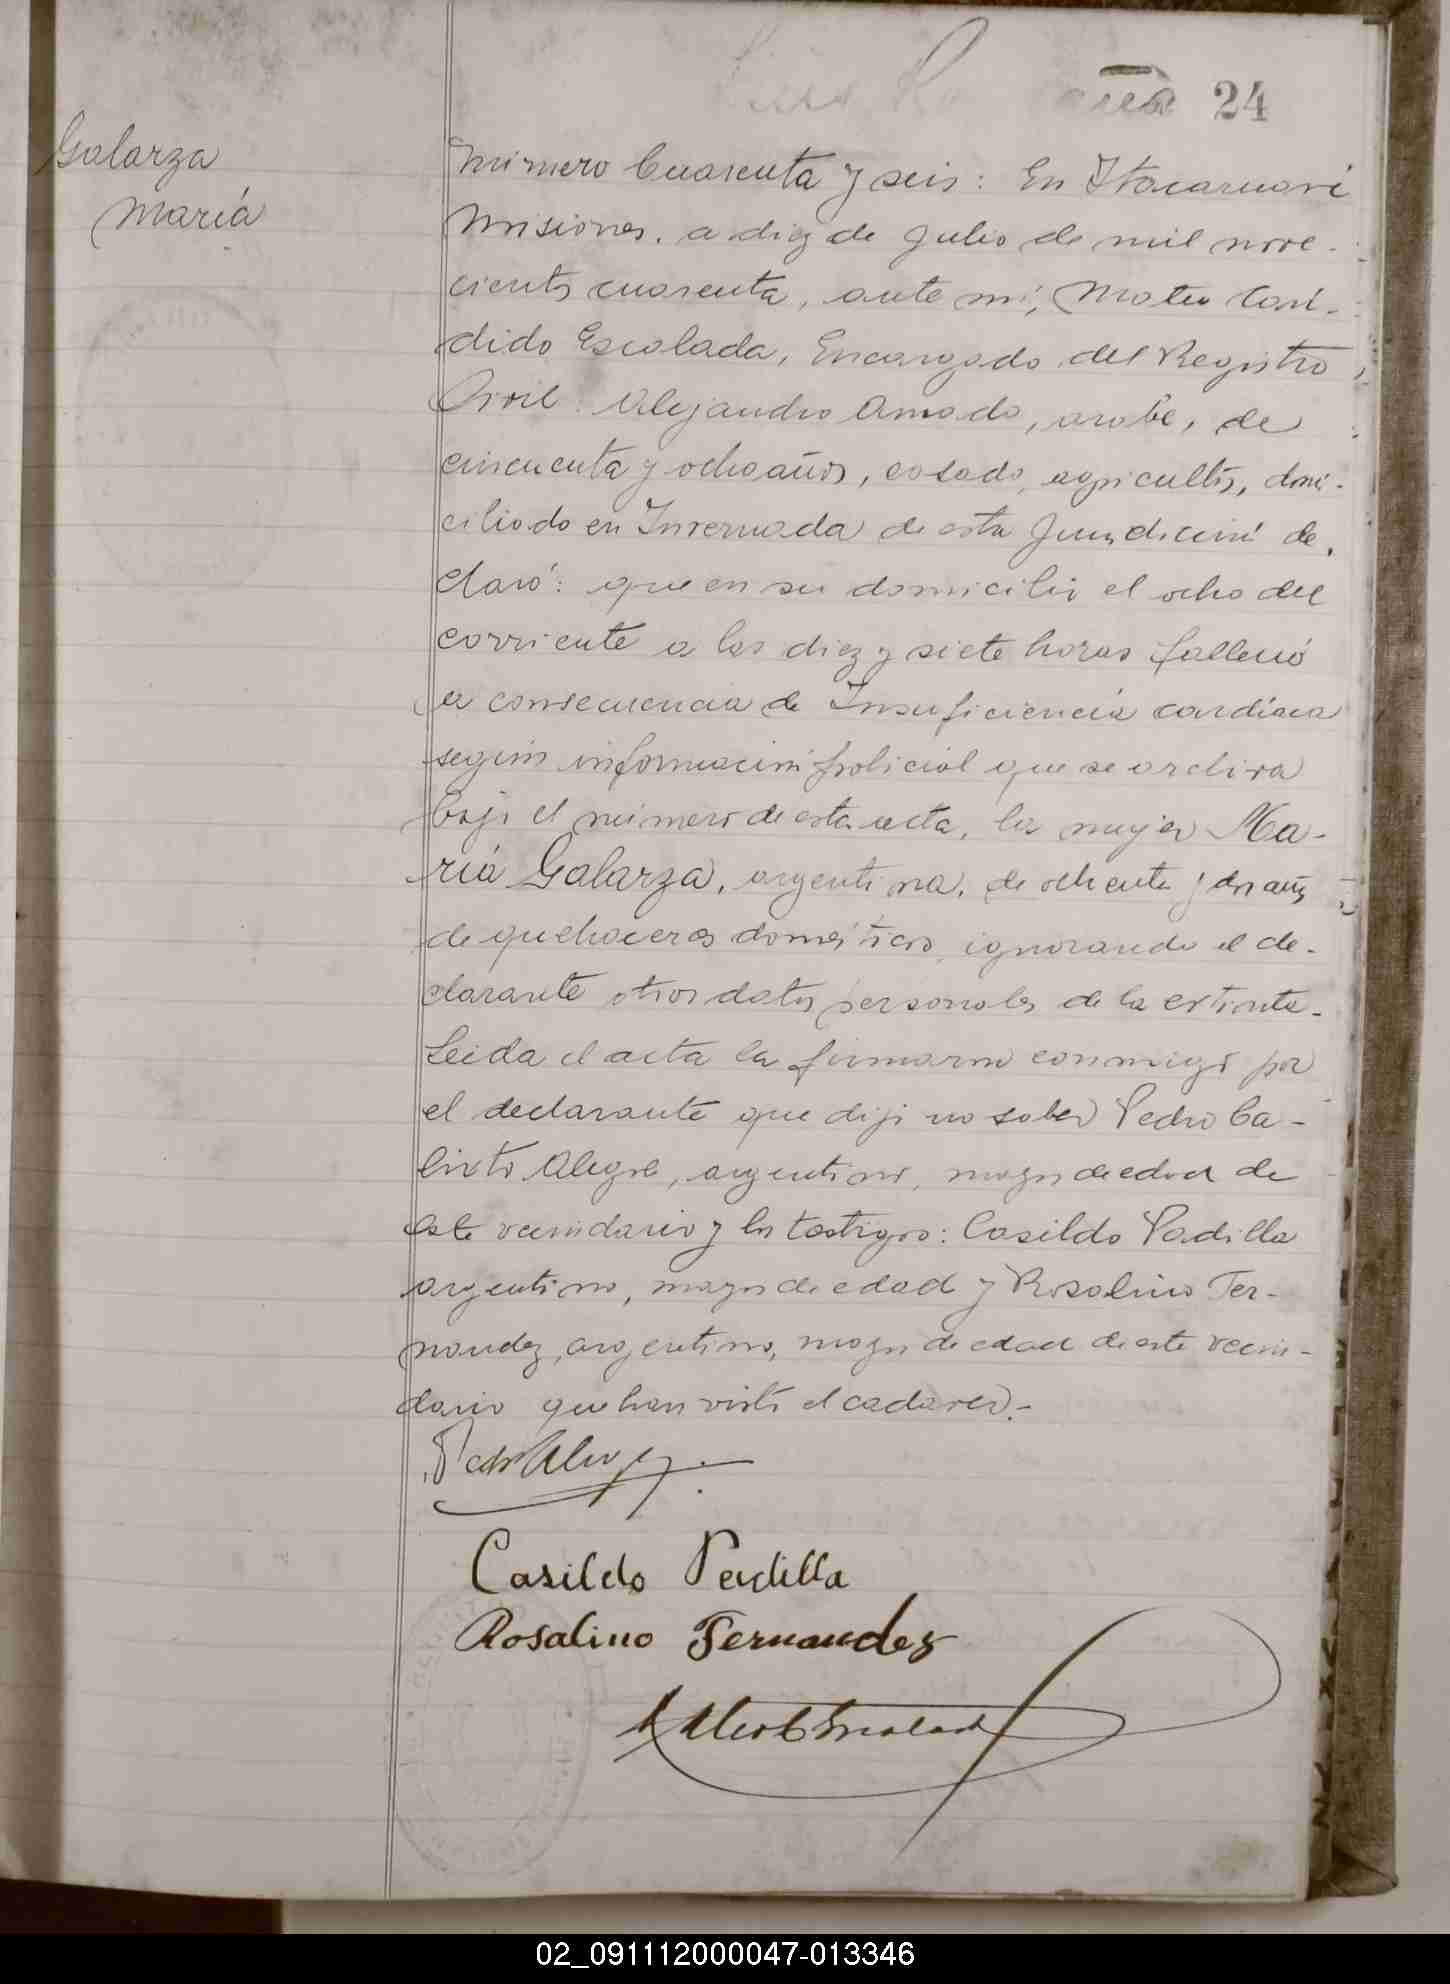 24
Galarza
María
Número Cuarenta y seis: En Itacaruaré
Misiones, a diez de Julio de mil nove-
cientos cuarenta, ante mí, Mateo Cán-
dido Escalada, Encargado del Registro
Civil: Alejandro Amado, arabe, de
cincuenta y ocho años, casado, agricultor, domi-
ciliado en Invernada de esta Jurisdicción de-
claró: que en su domicilio el ocho del
corriente a las diez y siete horas falleció
a consecuencia de Insuficiencia cardíaca
según información policial que se archiva
bajo el número de esta acta, la mujer Ma-
ría Galarza, argentina, de ochenta y dos años
de quehaceres domésticos, ignorando el de-
clarante otros datos personales de la extinta.
Leida el acta la firmaron conmigo por
el declarante que dijo no saber Pedro Ca-
lixto Alegre, argentino, mayor de edad de
este vecindario y los testigos: Casildo Padilla
argentino, mayor de edad y Rosalino Fer-
nandez, argentino, mayor de edad de este vecin-
dario que han visto el cadaver.-
Casildo Padilla
Rosalino Fernandez
02_091112000047-013346